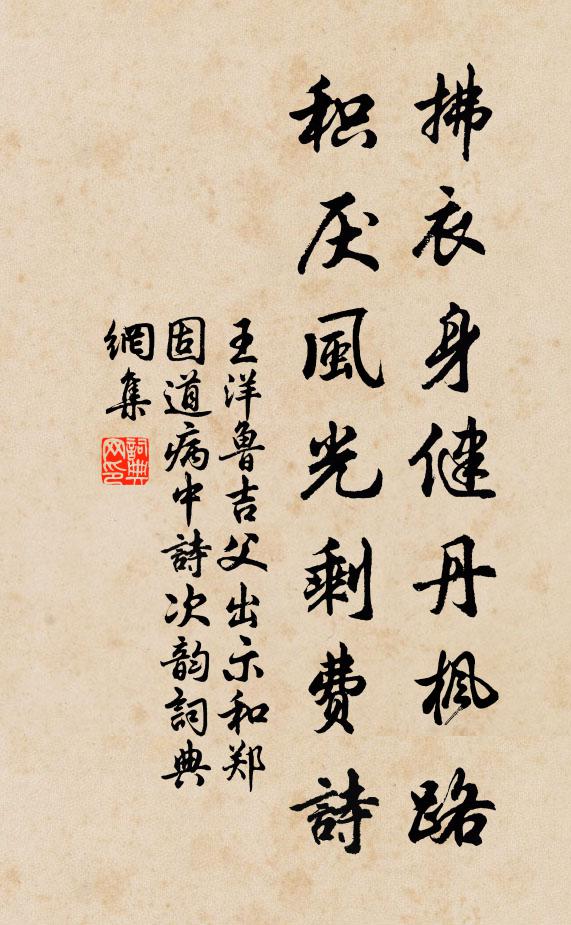 拂衣身健丹枫路
积厌風光剩费詩
王洋鲁吉父出示和郑
固道病中詩次韵詞典
網集
詞典网印